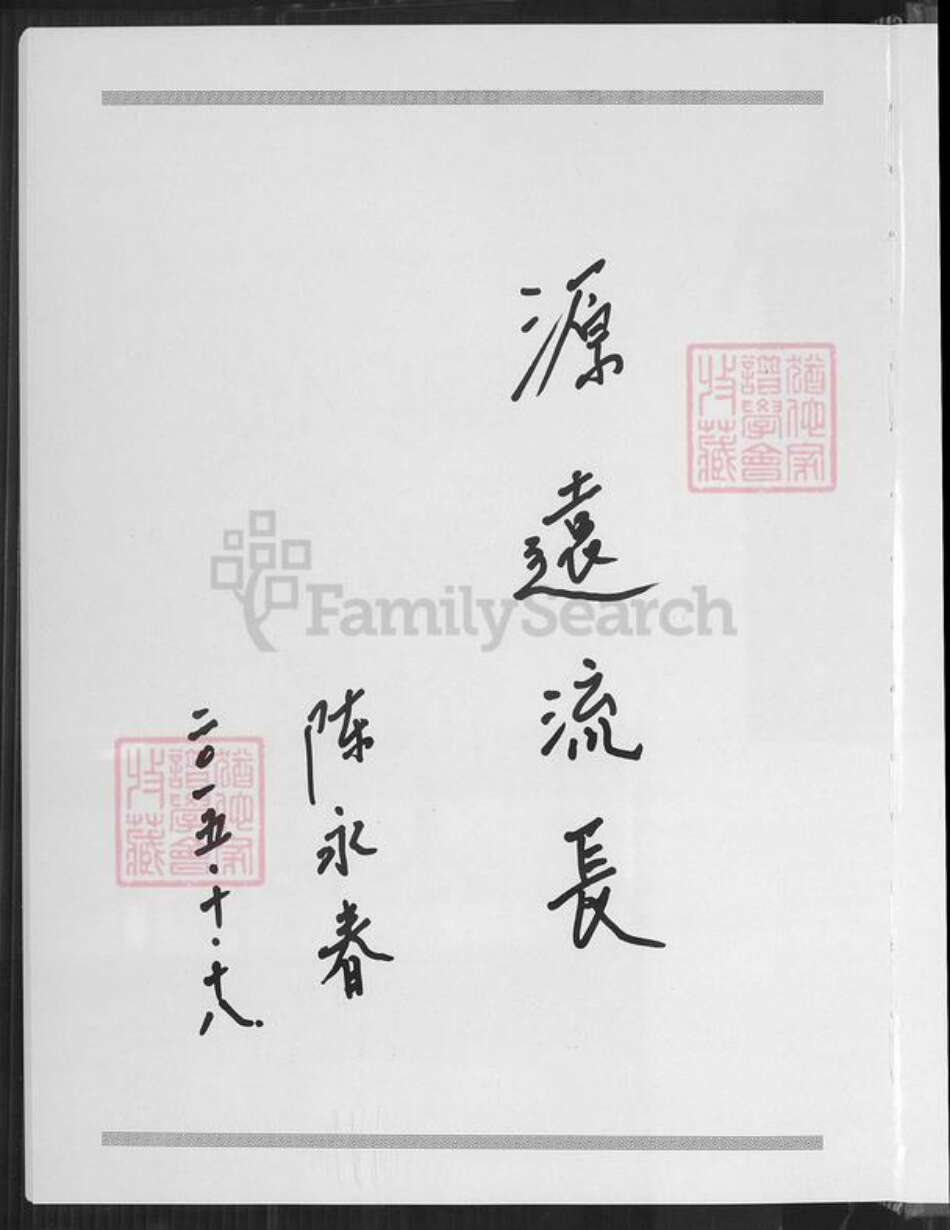 源遠流長
陈永春
二〇一五.十.十八.
猶他家
譜學會
收藏
FamilySearch
猶他家
譜學會
收藏